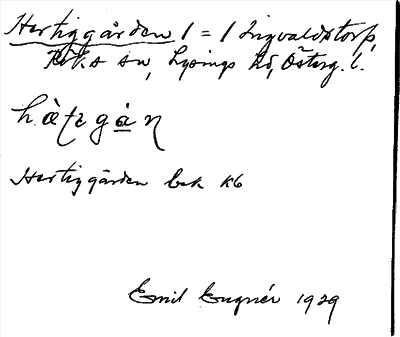 Hertiggården 1 = 1 Ingvaldstorp,
Röks sn, Lysings hd, Österg. l.
hàƭzgáɳ
Hertiggården bek Kb
Emil Eugnér 1929